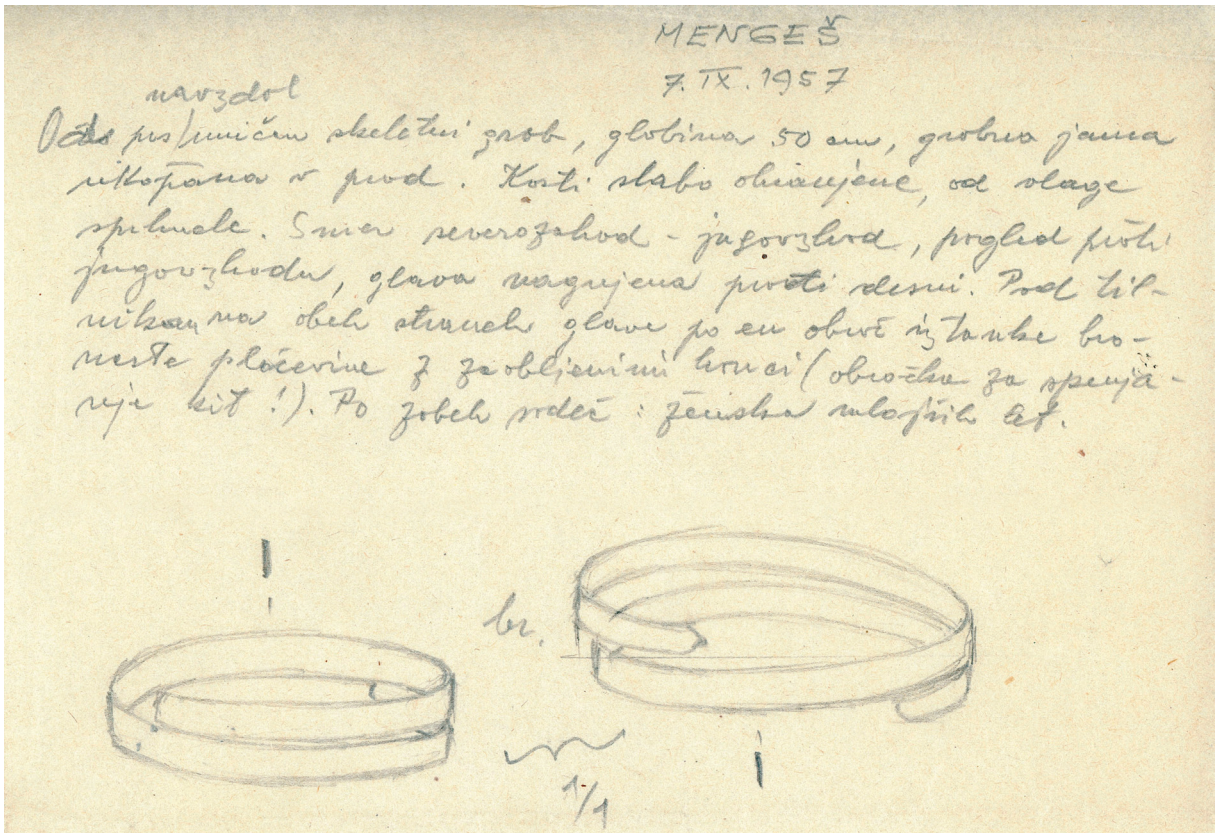 MENGEŠ
7. IX. 1957
navzdol
Od prs/uničen skeletni grob, globina 50 cm, grobna jama
vkopana v prod. Kosti slabo ohranjene, od vlage
sprhnele. Smer severozahod - jugovzhod, pogled proti
jugovzhodu, glava nagnjena proti desni. Pod til-
nikom na obeh straneh glave po en obroč iz tanke bro-
naste pločevine z zaobljenimi konci (obročka za spenja-
nje kit!). Po zobeh sodeč: ženska mlajših let.
br.
1/1